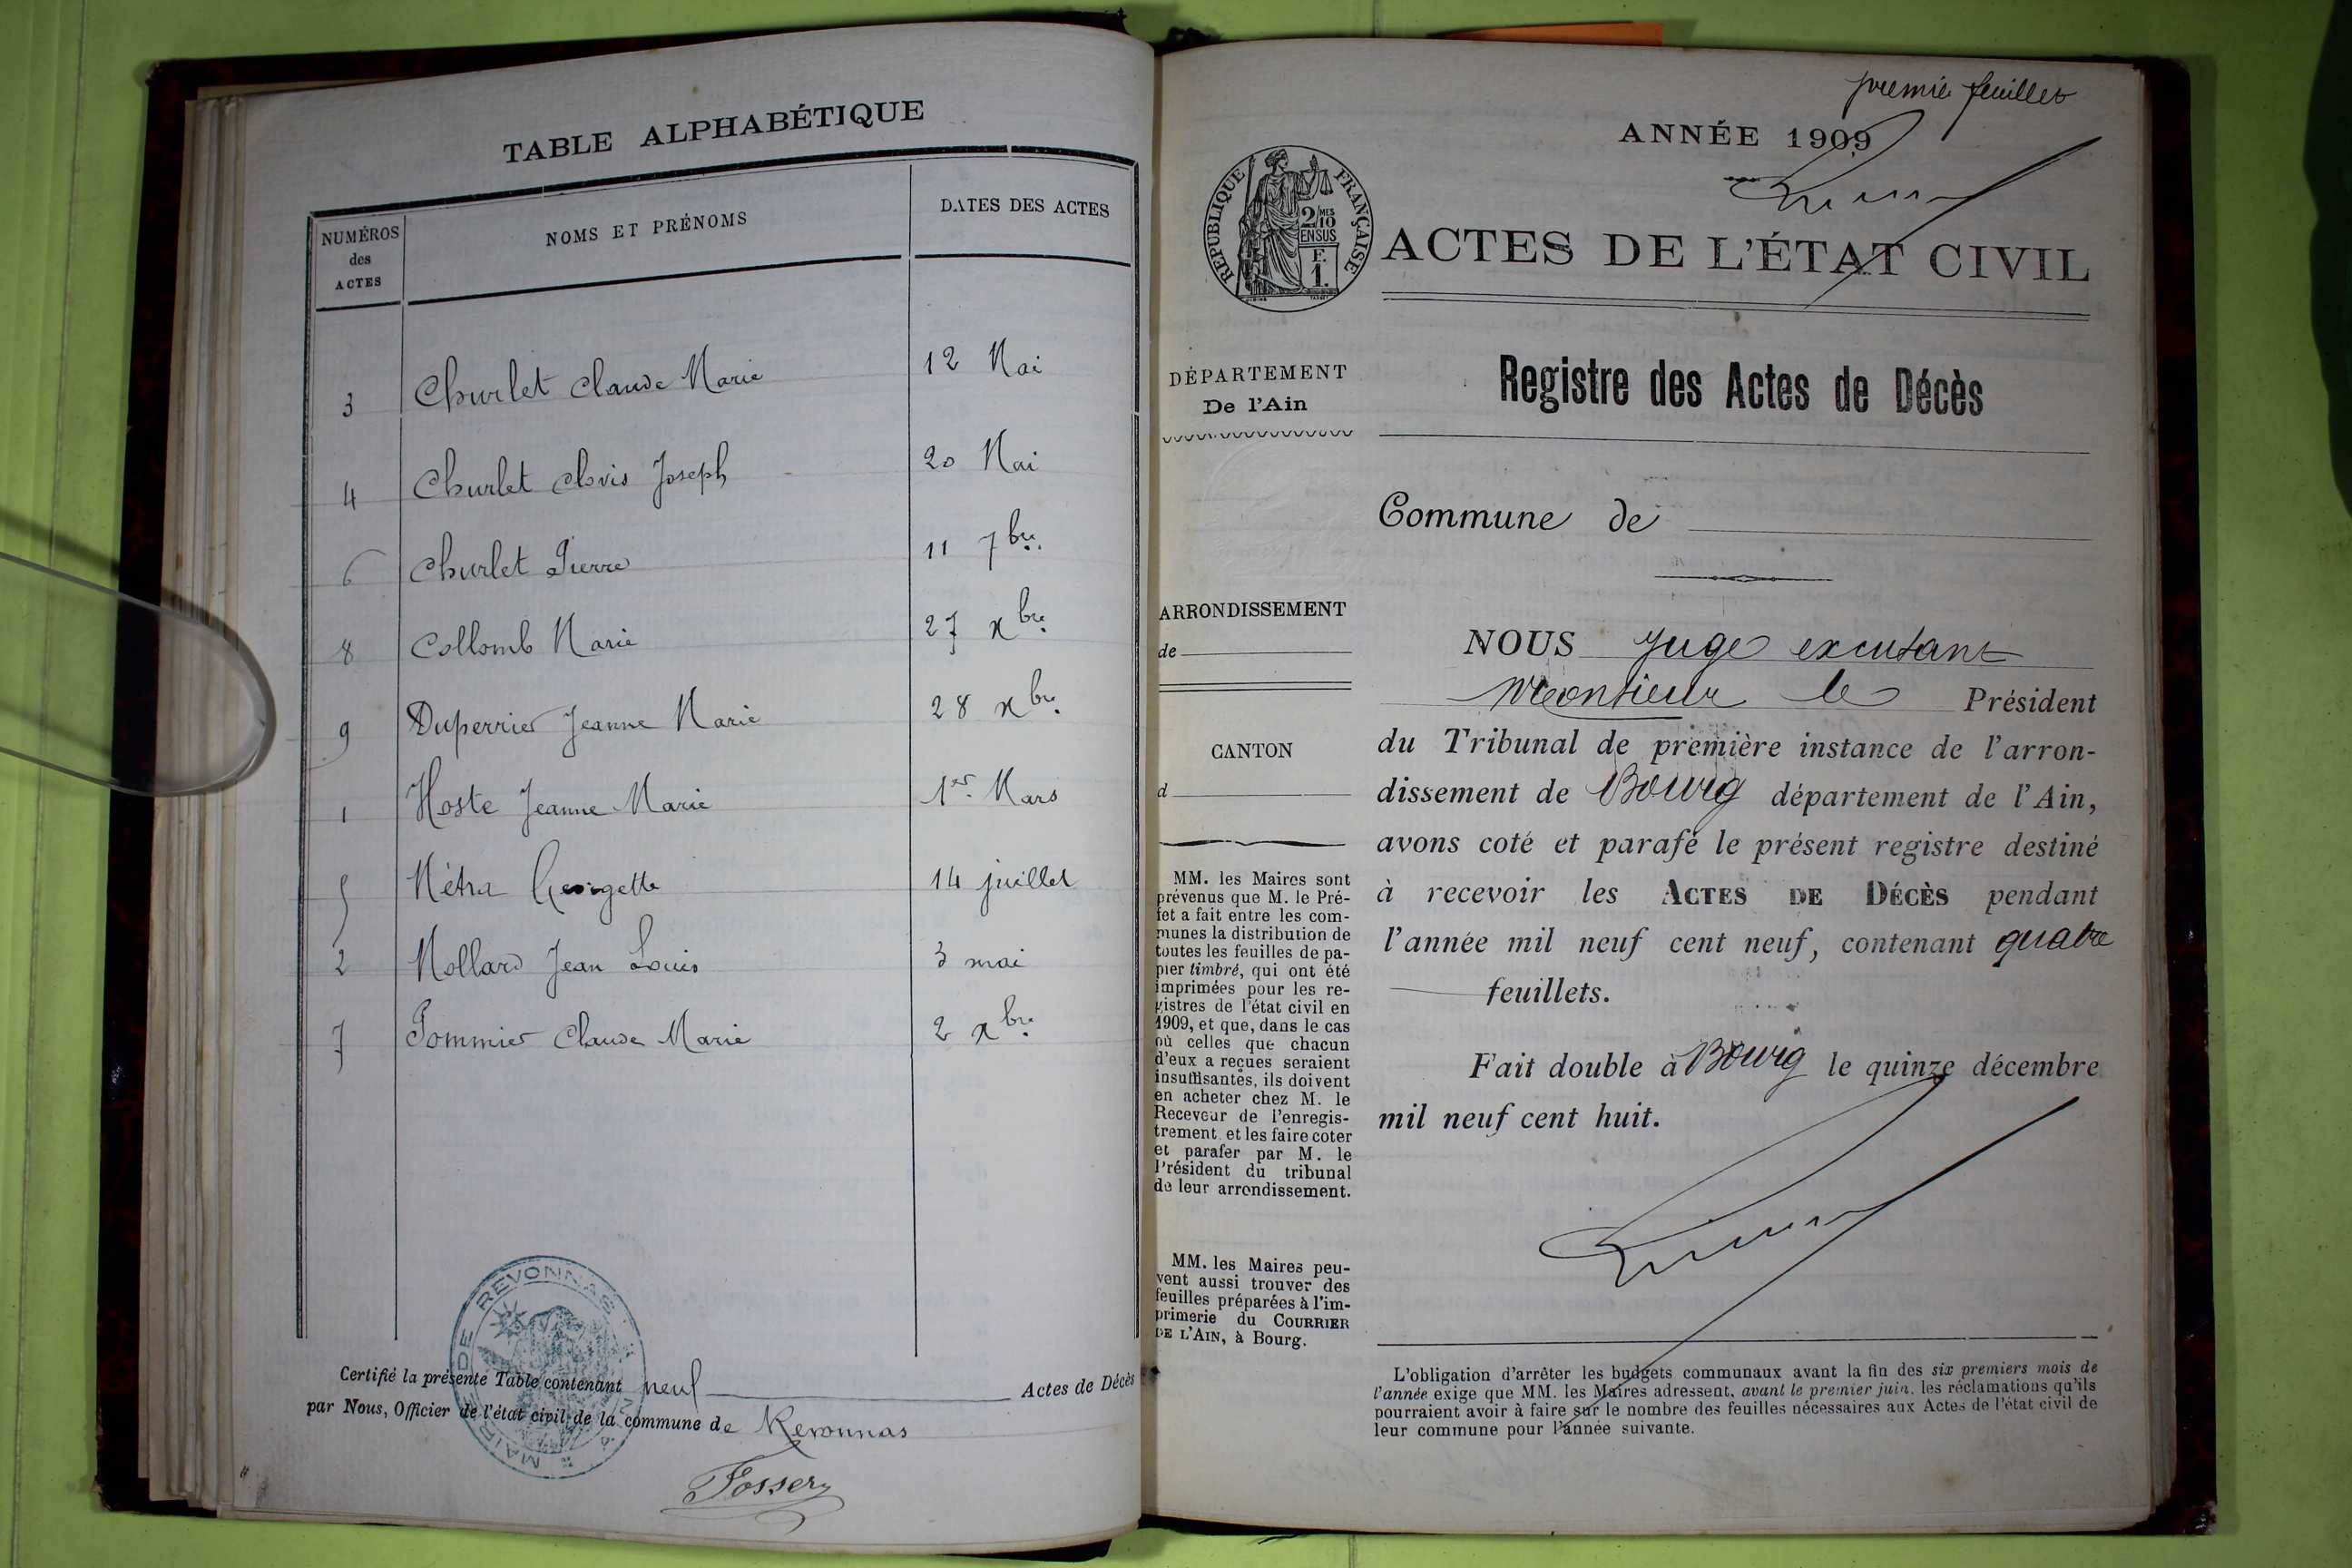 TABLE ALPHABÉTIQUE
NUMÉROS des ACTES
NOMS ET PRÉNOMS
DATES DES ACTES
3 Churlet Claude Marie 12 Mai
4 Churlet Clovis Joseph 20 Mai
6 Churlet Pierre 11 7bre
8 Collomb Marie 27 xbre
9 Duperrier Jeanne Marie 28 xbre
1 Hoste Jeanne Marie 1er Mars
5 Métra Georgette 14 juillet
2 Mollard Jean Louis 3 mai
7 Pommier Claude Marie 2 xbre
MAIRIE DE REVONNAS
Certifié la présente Table contenant neuf Actes de Décès
par Nous, Officier de l'état civil de la commune de Revonnas
premier feuillet
ANNÉE 1909
RÉPUBLIQUE FRANÇAISE
2/10 MES
EN SUS
F.
1.
ACTES DE L'ÉTAT CIVIL
DÉPARTEMENT
De l'Ain
Registre des Actes de Décès
Commune de
ARRONDISSEMENT
de
CANTON
d
MM. les Maires sont
prévenus que M. le Pré-
fet a fait entre les com-
munes la distribution de
toutes les feuilles de pa-
pier timbré, qui ont été
imprimées pour les re-
gistres de l'état civil en
1909, et que, dans le cas
où celles que chacun
d'eux a reçues seraient
insuffisantes, ils doivent
en acheter chez M. le
Receveur de l'enregis-
trement et les faire coter
et parafer par M. le
Président du tribunal
de leur arrondissement.
MM. les Maires peu-
vent aussi trouver des
feuilles préparées à l'im-
primerie du COURRIER
DE L'AIN, à Bourg.
NOUS Juge excusant
Monsieur le Président
du Tribunal de première instance de l'arron-
dissement de Bourg département de l'Ain,
avons coté et parafé le présent registre destiné
à recevoir les ACTES DE DÉCÈS pendant
l'année mil neuf cent neuf, contenant quatre
feuillets.
Fait double à Bourg le quinze décembre
mil neuf cent huit.
L'obligation d'arrêter les budgets communaux avant la fin des six premiers mois de
l'année exige que MM. les Maires adressent, avant le premier juin, les réclamations qu'ils
pourraient avoir à faire sur le nombre des feuilles nécessaires aux Actes de l'état civil de
leur commune pour l'année suivante.